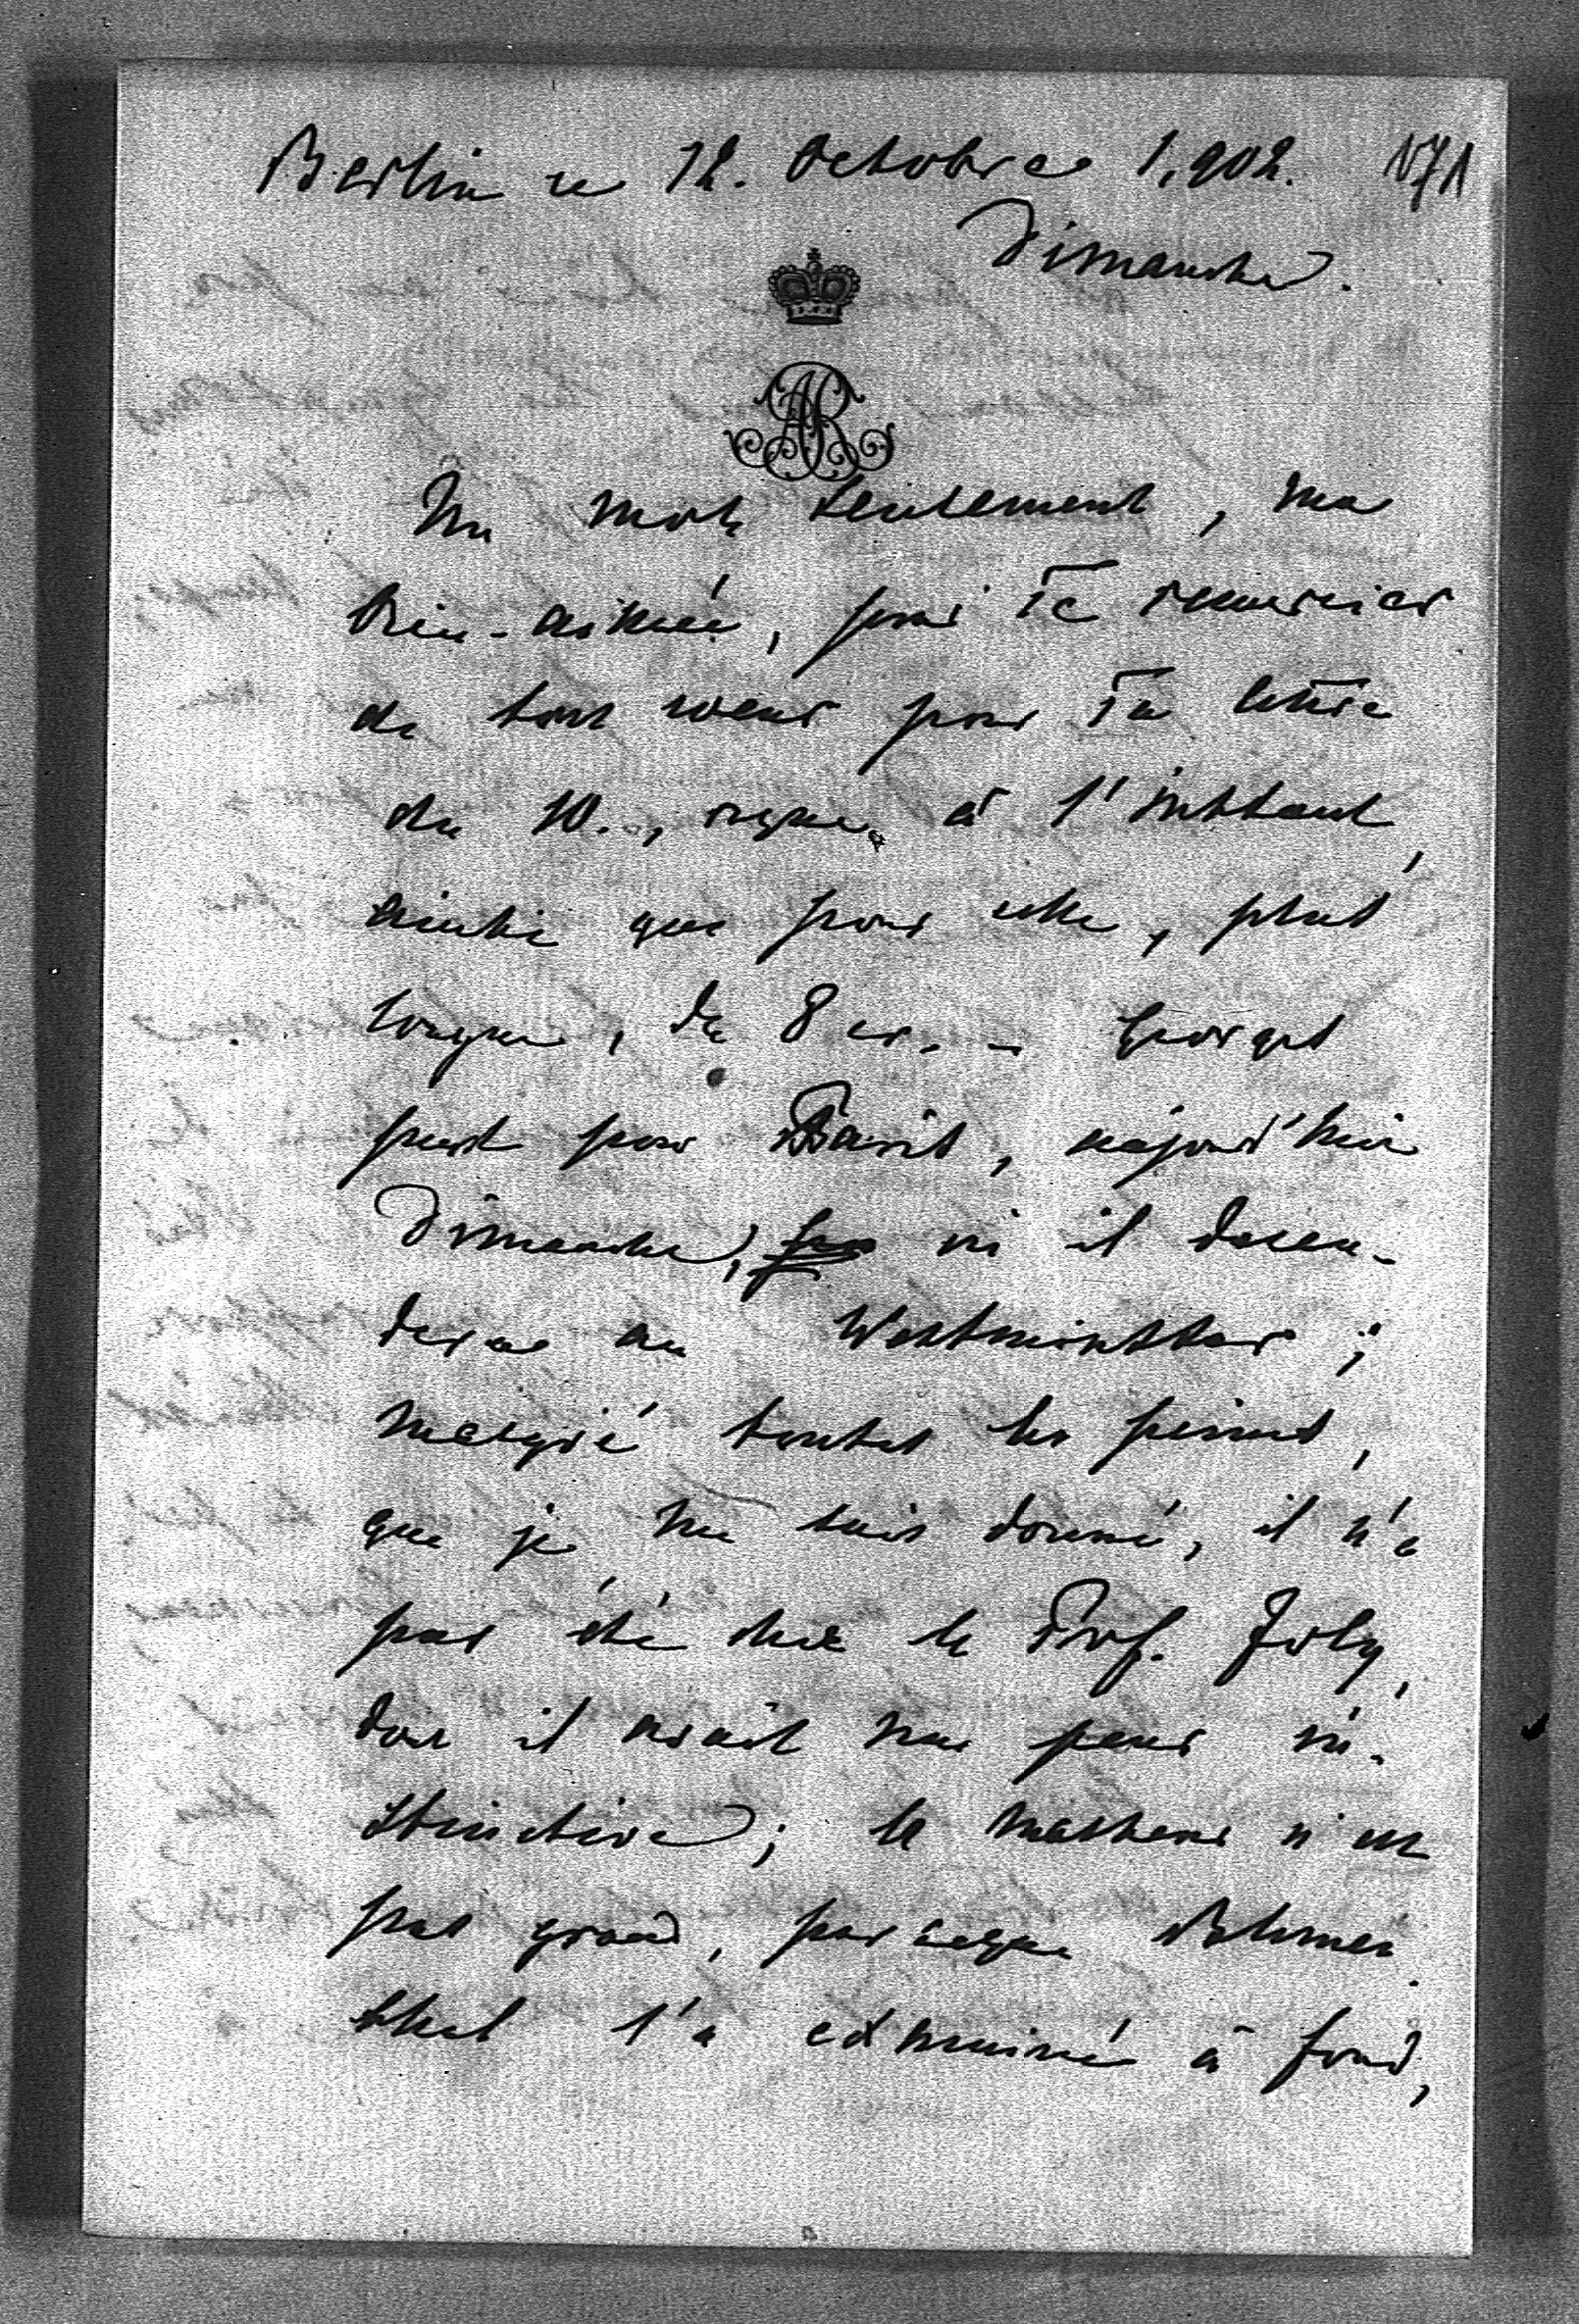 Berlin ce 12. Octobre 1.902. 171
Dimanche.
AR
Un mot seulement, ma
bien-aimée, pour Te remercier
de tout coeur pour Ta lettre
du 10., reçue à l'instant,
ainsi que pour celle, plus
longue, du 8 cr. – Georges
part pour Paris, aujourd'hui
Dimanche, où il descen-
dra au Westminster;
malgré toutes les peines,
que je me suis donné, il n'a
pas été chez le Prof. Joly,
dont il avait une peur in-
stinctive; le malheur n'est
pas grand, parceque
l'a examiné à fond,